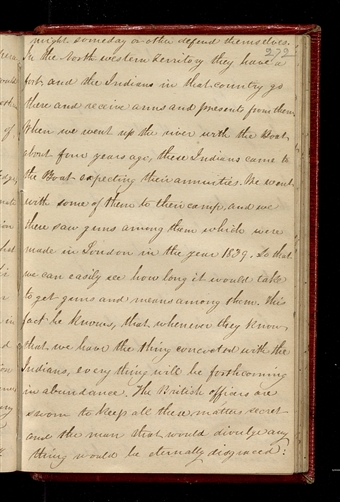 might someday or other defend themselves.
272
In the North western Territory they have a
fort, and the Indians in that country go
there and receive arms and presents from them
When we went up the river with the Boat
about four years ago, these Indians came to
the Boat expecting their annuities. We went
with some of them to their camp, and we
there saw guns among them which were
made in London in the year 1839. So that
we can easily see how long it would take
to get guns and means among them. This
fact he knows, that whenever they know,
that we have the thing concocted with the
Indians, every thing will be forthcoming
in abundance. The British officers are
sworn to keep all these matters secret
and the man that would divulge any
thing would be eternally disgraced: